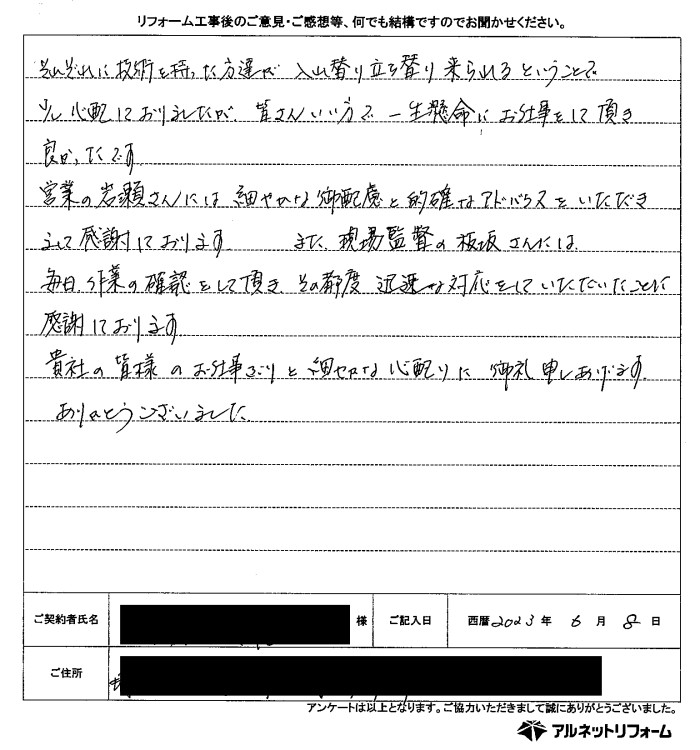 リフォーム工事後のご意見・ご感想等、何でも結構ですのでお聞かせください。
それぞれに技術を持った方達が 入れ替り立ち替り来られるということで
少し心配しておりましたが、皆さんいい方で一生懸命にお仕事をして頂き
良かったです。
営業の岩瀬さんには細やかな御配慮と的確なアドバイスをいただき
まして感謝しております。 また、現場監督の板坂さんには、
毎日作業の確認をして頂き、その都度 迅速な対応をしていただいたことに
感謝しております。
貴社の皆様のお仕事ぶりと細やかな心配りに御礼申しあげます。
ありがとうございました。
ご契約者氏名 様 ご記入日 西暦2023年 6月 8日
ご住所
アンケートは以上となります。ご協力いただきまして誠にありがとうございました。
アルネットリフォーム